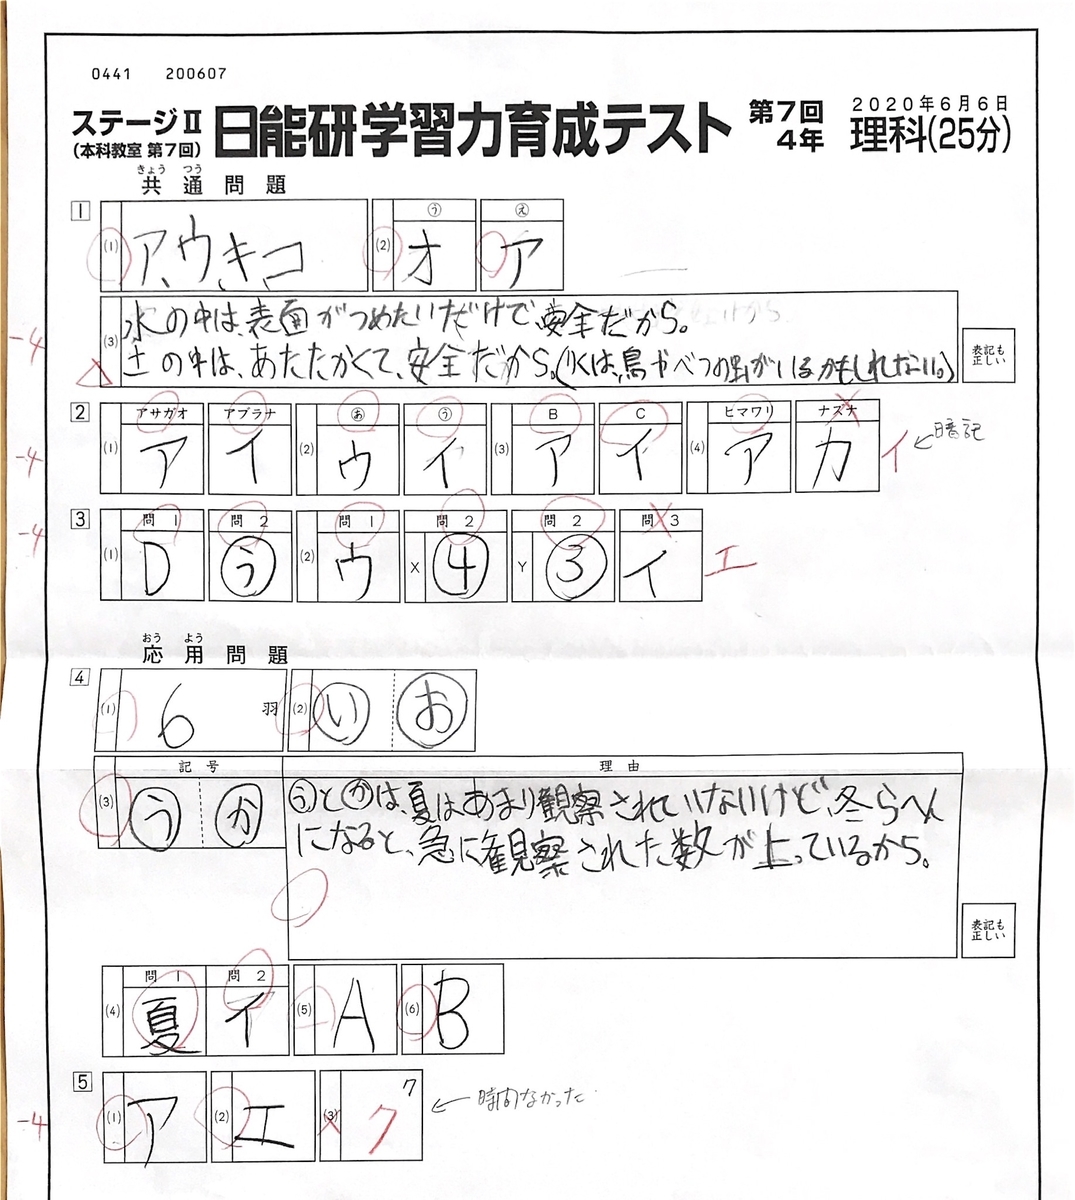 0441 200607
ステージⅡ
(本科教室 第7回)
日能研学習力育成テスト
第7回
4年
2020年6月6日
理科(25分)
きょう つう
共通問題
1
(1) ア、ウ、キ、コ
(2) う オ え ア
(3) 水の中は、表面がつめたいだけで、安全だから。
土の中は、あたたかくて、安全だから。(りくは、鳥やべつの虫がいるかもしれない。)
表記も
正しい
-4
2
アサガオ アブラナ あ う B C ヒマワリ ナズナ
(1) ア イ (2) ウ イ (3) ア イ (4) ア カ イ ←暗記
-4
3
問1 問2 問1 問2 問2 問3
(1) D う (2) ウ X ④ Y ③ イ エ
-4
おう よう
応用問題
4
(1) 6 羽 (2) い お
記号 理由
(3) う か
うとかは、夏はあまり観察されていないけど、冬らへん
になると、急に観察された数が上っているから。
表記も
正しい
問1 問2
(4) 夏 イ (5) A (6) B
5
(1) ア (2) エ (3) ク ク ←時間なかった
-4